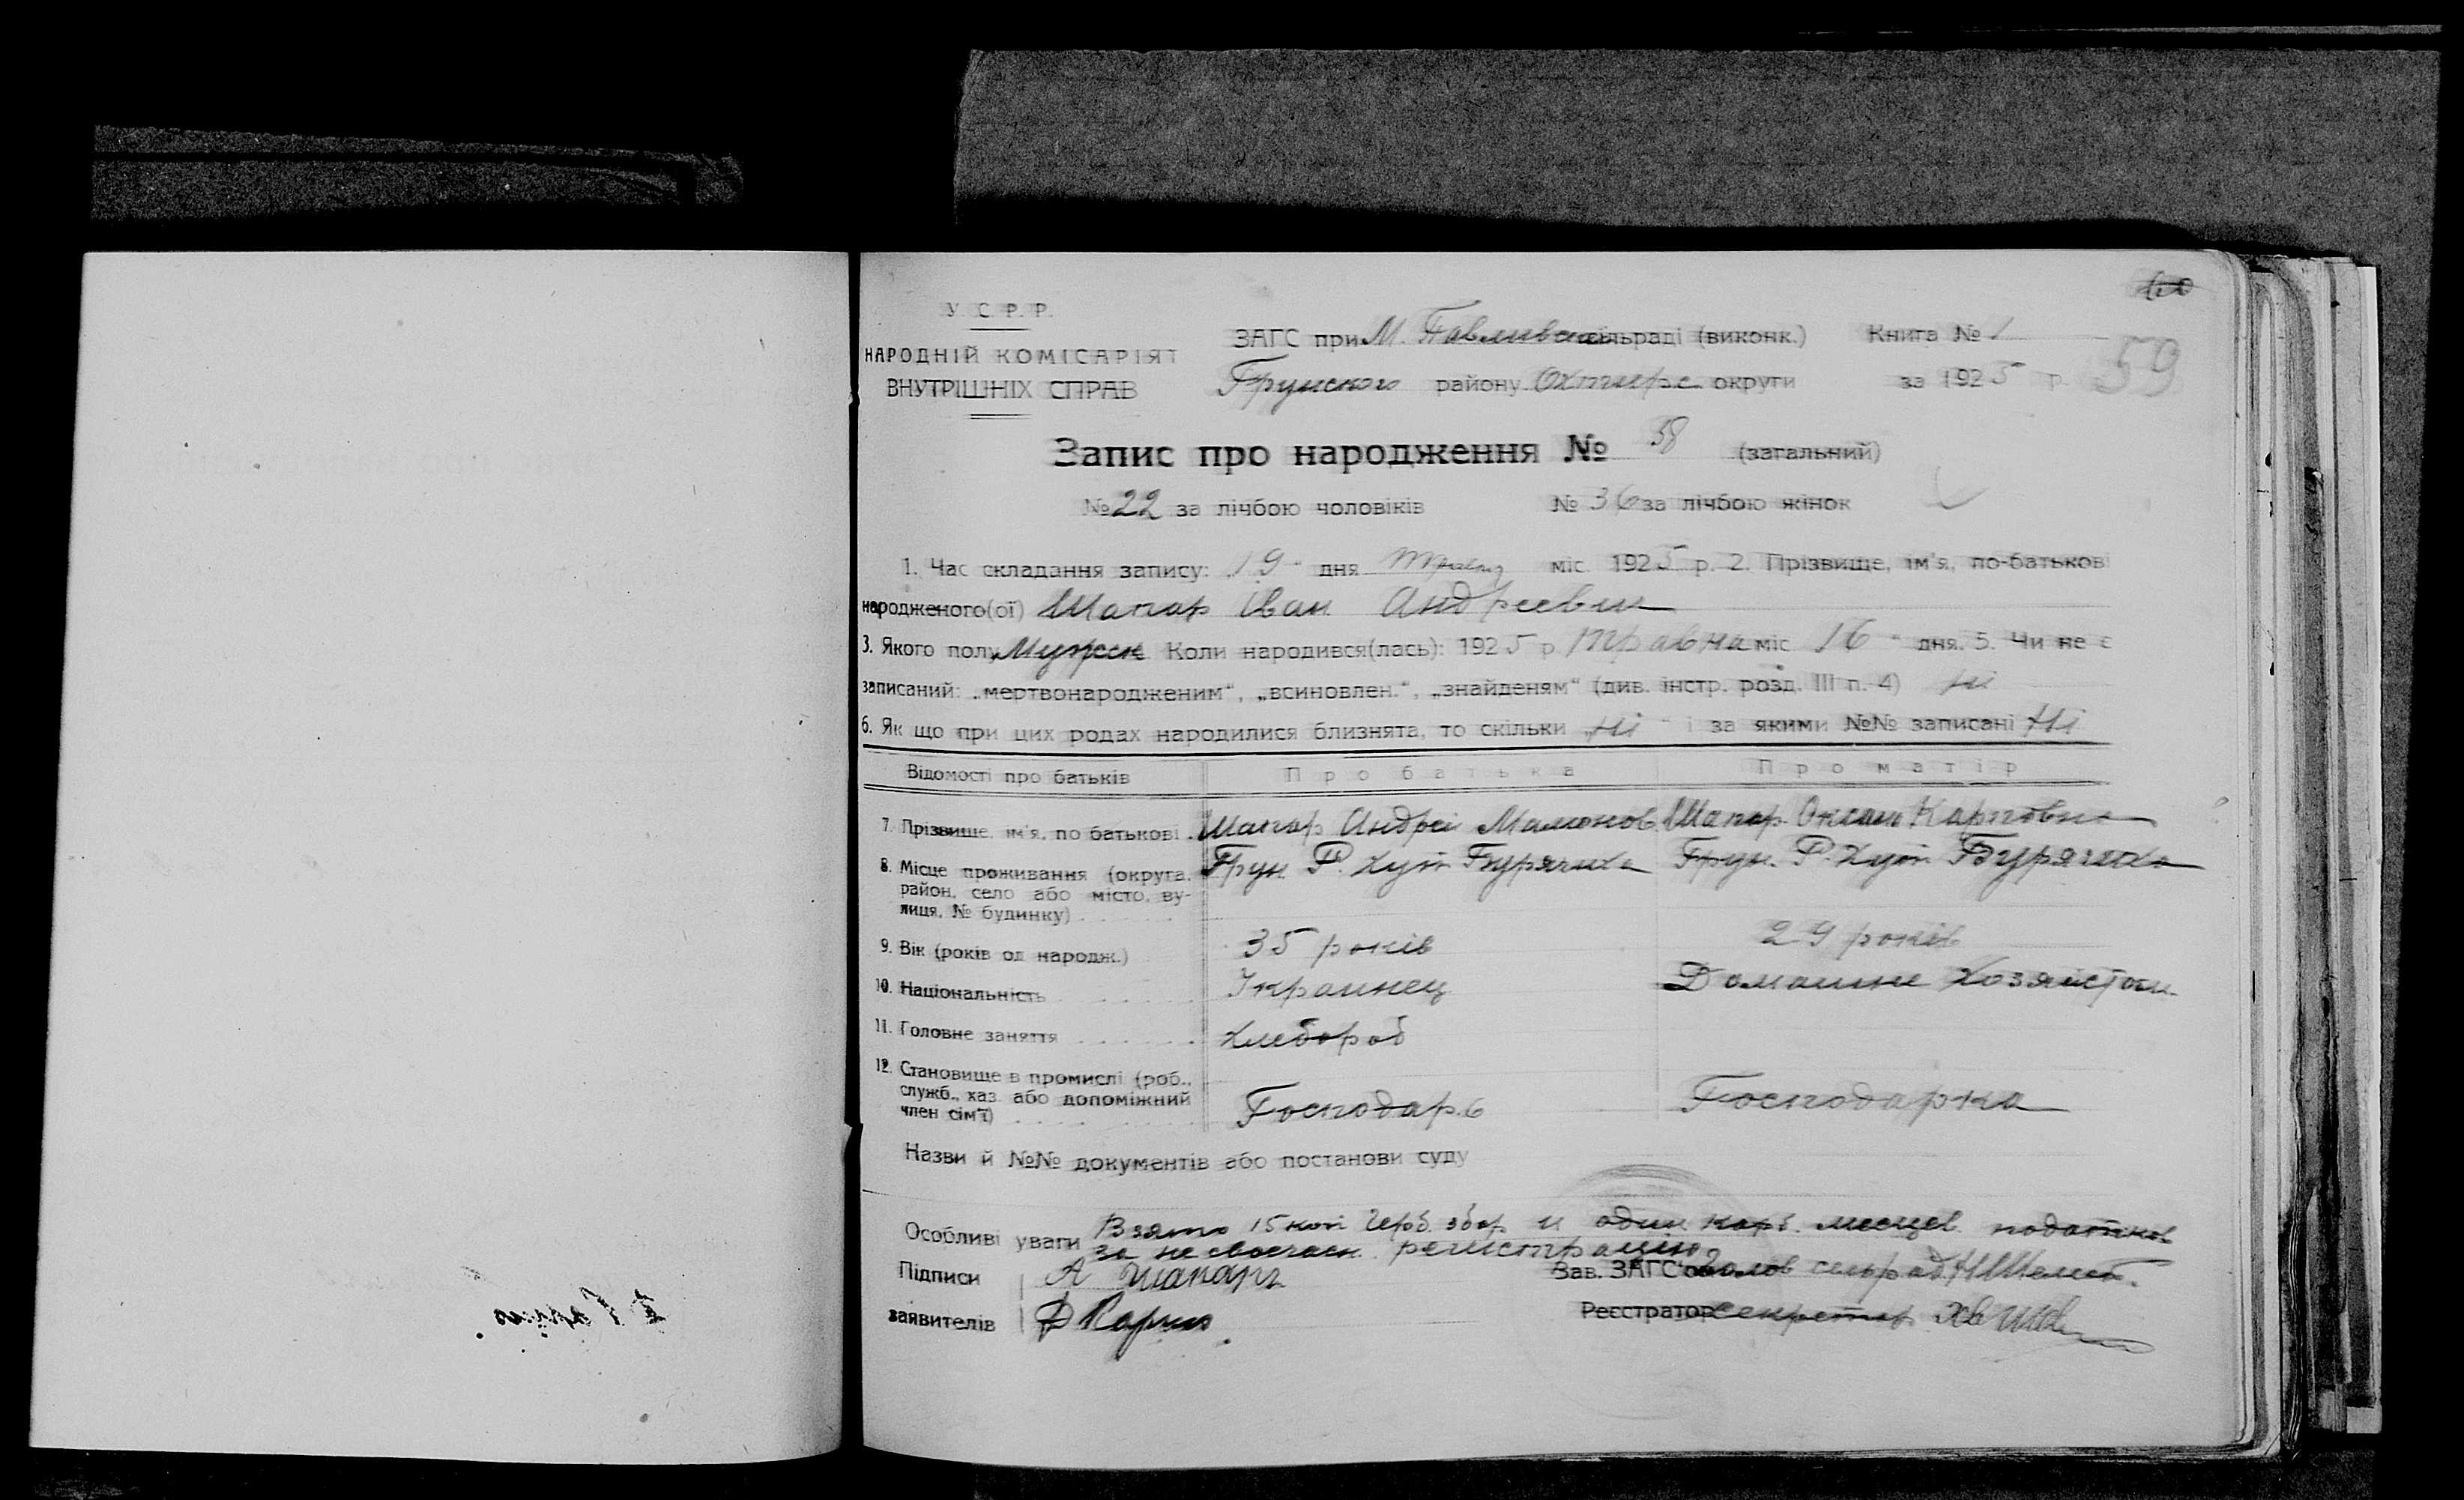 60
У. С. Р. Р.
НАРОДНІЙ КОМІСАРІЯТ
ВНУТРІШНІХ СПРАВ
ЗАГС при М. Павливской сільраді (виконк.) Книга № 1
Грунского району Охтирс округи за 1925 р. 59
Запис про народження № 58 (загальний)
№ 22 за лічбою чоловіків № 36 за лічбою жінок
1. Час складання запису: „19“ дня травня міс. 1925 р. 2. Прізвище, ім'я, по-батькові
народженого(ої) Шапар Іван Андреевич
3. Якого полу Мужск Коли народився(лась): 1925 р. травна міс 16“ дня. 5. Чи не є
записаний: „мертвонародженим“, „всиновлен.“, „знайденям“ (див. інстр. розд. III п. 4) ні
6. Як що при цих родах народилися близнята, то скільки „Ні“ і за якими №№ записані Ні
Відомості про батьків Про батька Про матір
7. Прізвище, ім'я, по батькові . Шапар Андрей Мамонов Шапар Оксана Карповна
8. Місце проживання (округа, Грун. Р. хут Бурячиха Грун. Р. Хут Бурячиха
район, село або місто, ву-
лиця, № будинку)
9. Вік (років од народж.) 35 років 29 років
10. Національність Украинец Домашне Хозяйство
11. Головне заняття хлебороб
12. Становище в промислі (роб.,
служб., хаз. або допоміжний
член сім'ї) Господарь Господарка
Назви й №№ документів або постанови суду
Особливі уваги Взято 15 коп Герб. збор и один карб. месцев податков
за несвоечасн. регистрацію
Підписи А Шапарь Зав. ЗАГС'ом Голов сельрад
заявителів Реєстратор секретар